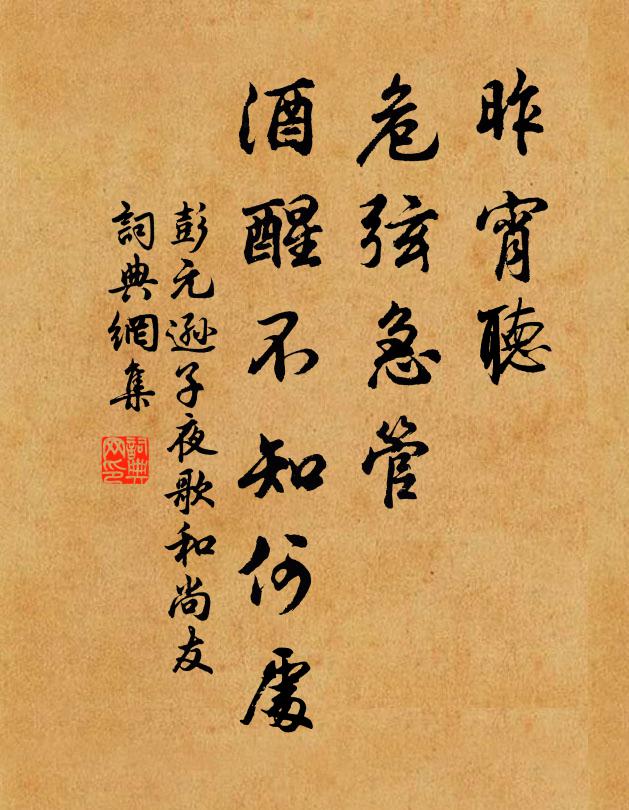 昨宵聽
危弦急管
酒醒不知何處
彭元遜子夜歌和尚友
詞典網集
詞典网印